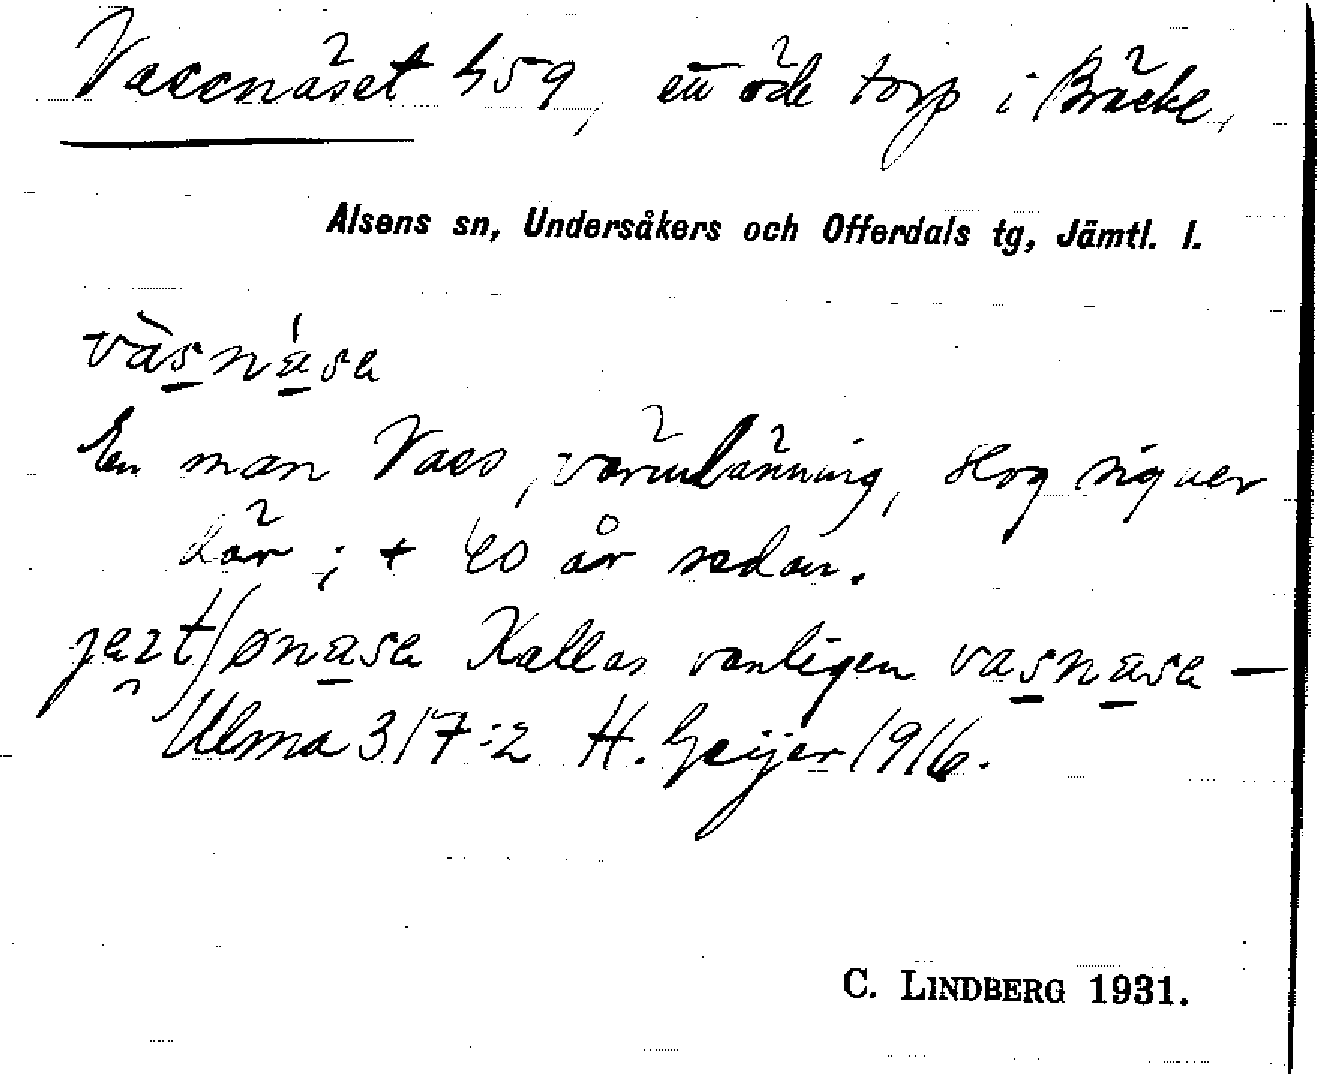 Vaccnäset 459, ett öde torp i Bräcke,
Alsens sn, Undersåkers och Offerdals tg, Jämtl. l.
vàsnása
En man Vacs, värmlänning, slog sig ner
där; + 40 år sedan.
Kallas vanligen vasnäsa —
Ulma 317:2 H. Geijer 1916.
C. LINDBERG 1931.